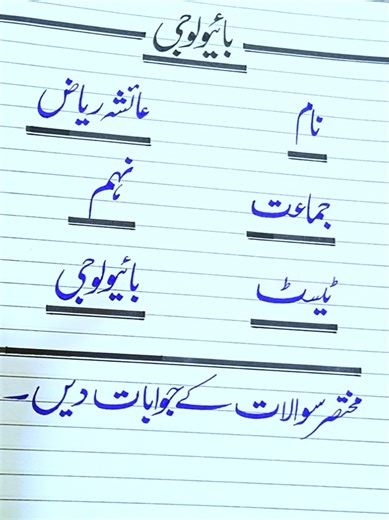 بائیولوجی
نام عائشہ ریاض
جماعت نہم
ٹیسٹ بائیولوجی
مختصر سوالات کے جوابات دیں۔